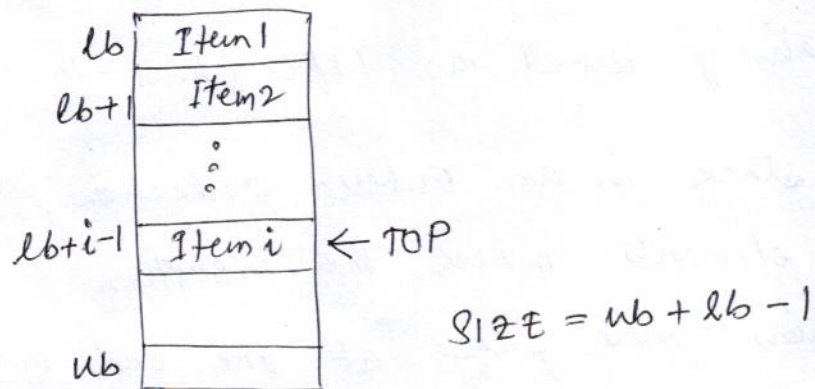 lb Item 1
lb+1 Item 2
lb+i-1 Item i ← TOP
SIZE = ub + lb - 1
ub